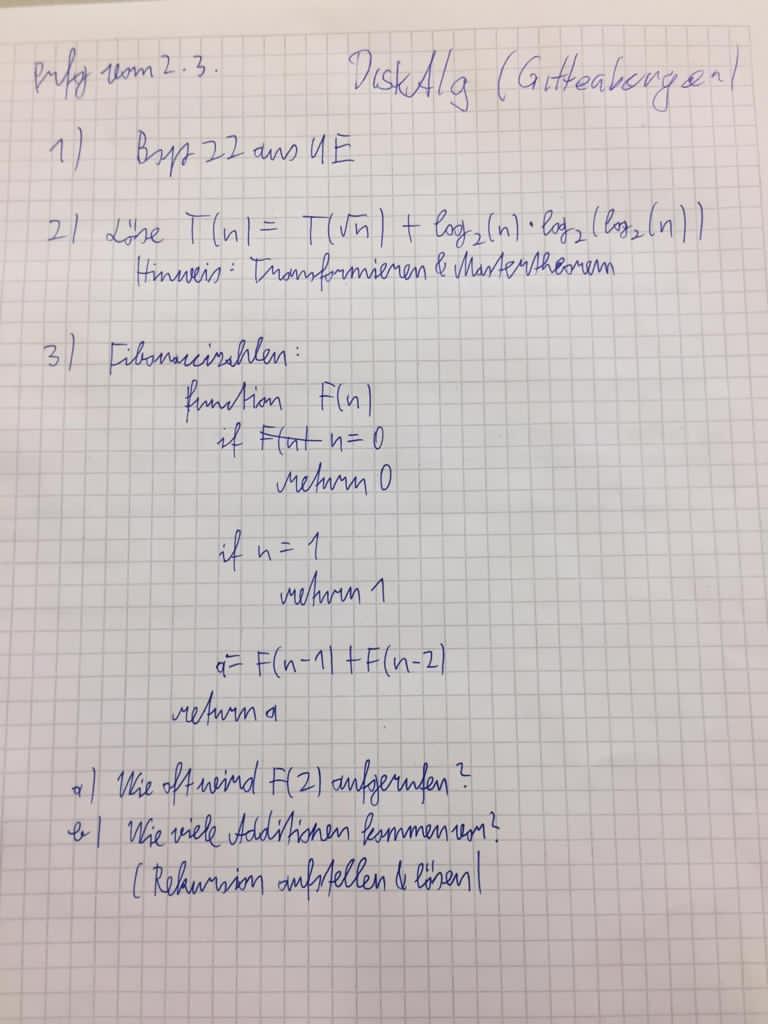 Prfg vom 2.3. DiskAlg (Gittenberger)
1) Bsp 22 aus UE
2) Löse T(n) = T(√n) + log₂(n)·log₂(log₂(n))
Hinweis: Transformieren & Mastertheorem
3) Fibonaccizahlen:
function F(n)
if n=0
return 0
if n = 1
return 1
a= F(n-1) + F(n-2)
return a
a) Wie oft wird F(2) aufgerufen?
b) Wie viele Additionen kommen vor?
(Rekursion aufstellen & lösen)